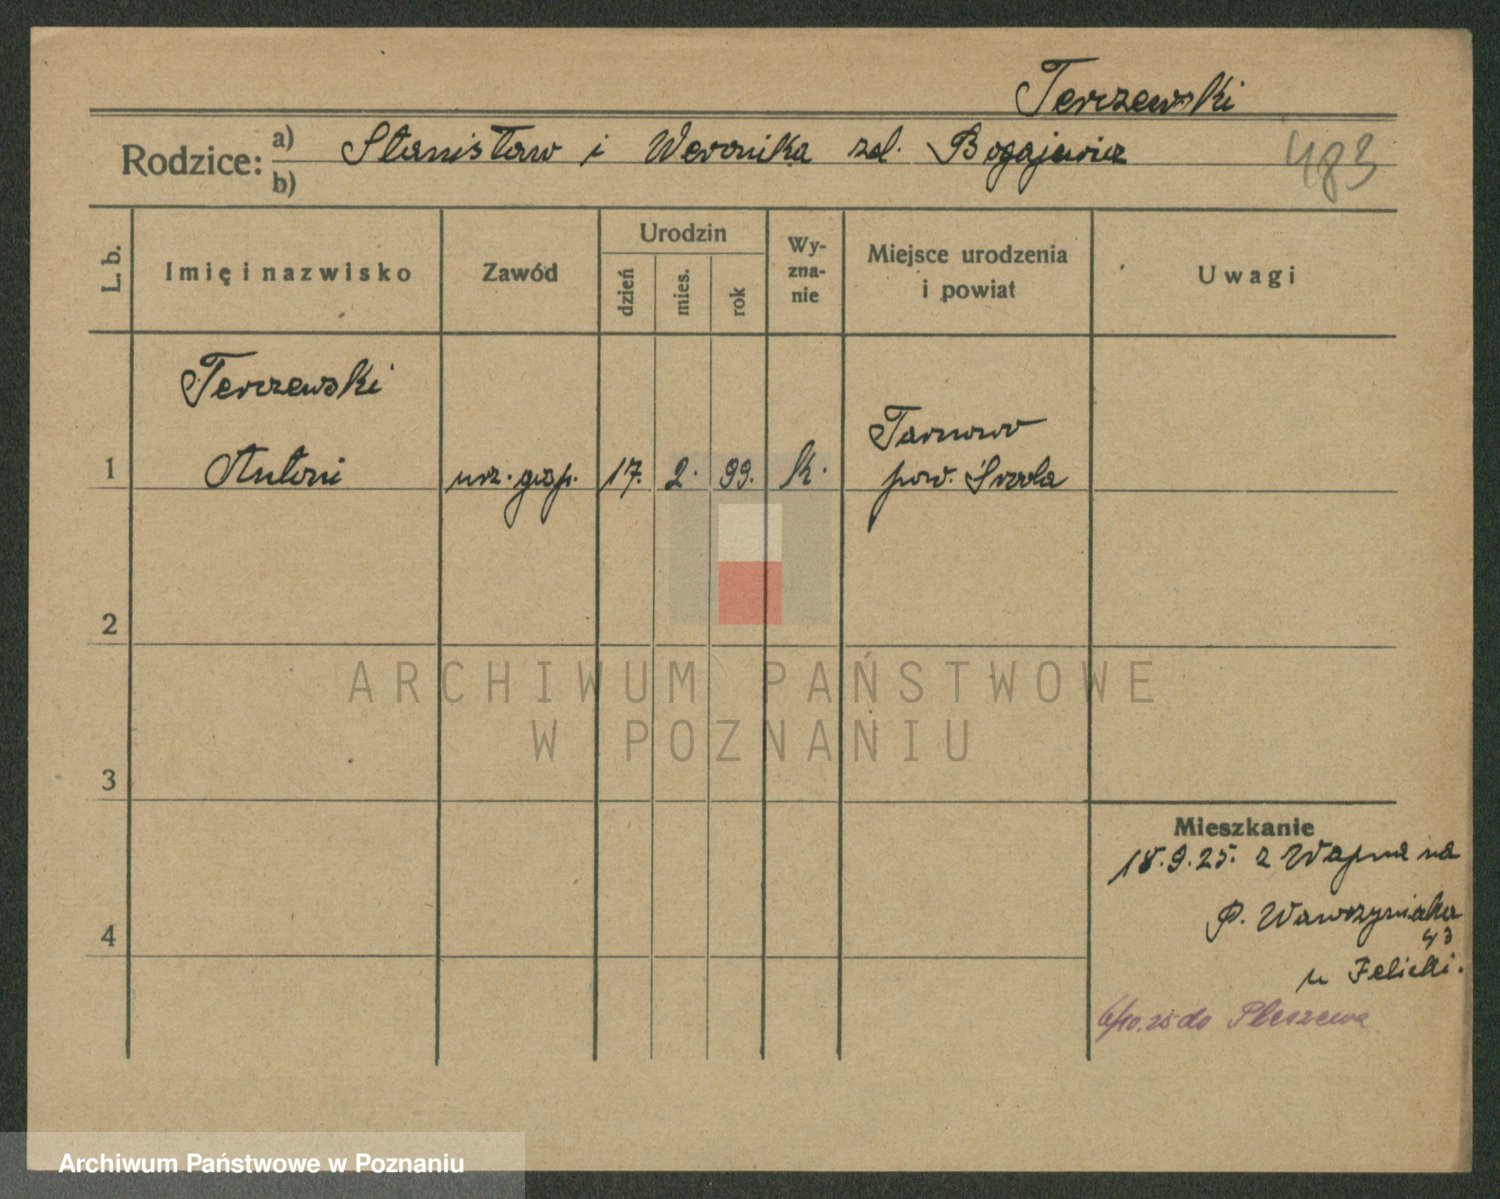 Terczewski
Rodzice: a) Stanisław i Weronika zd. Bogajewicz 483
b)
L. b.
Imię i nazwisko
Zawód
Urodzin
dzień
mies.
rok
Wy-
zna-
nie
Miejsce urodzenia
i powiat
Uwagi
Terczewski
1 Antoni urz. gosp. 17. 2. 99. k. Tarnowo
pow. Środa
2
ARCHIWUM PAŃSTWOWE
W POZNANIU
3
Mieszkanie
18.9.25. z Wapna na
P. Wawrzyniaka
43
4
u Felicki.
6/10.25 do Pleszewa
Archiwum Państwowe w Poznaniu